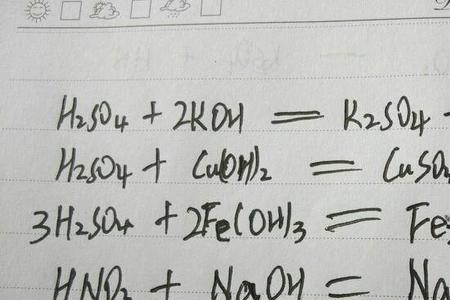 H₂SO₄ + 2KOH = K₂SO₄
H₂SO₄ + Cu(OH)₂ = CuSO₄
3H₂SO₄ + 2Fe(OH)₃ = Fe₂
HNO₃ + NaOH = Na